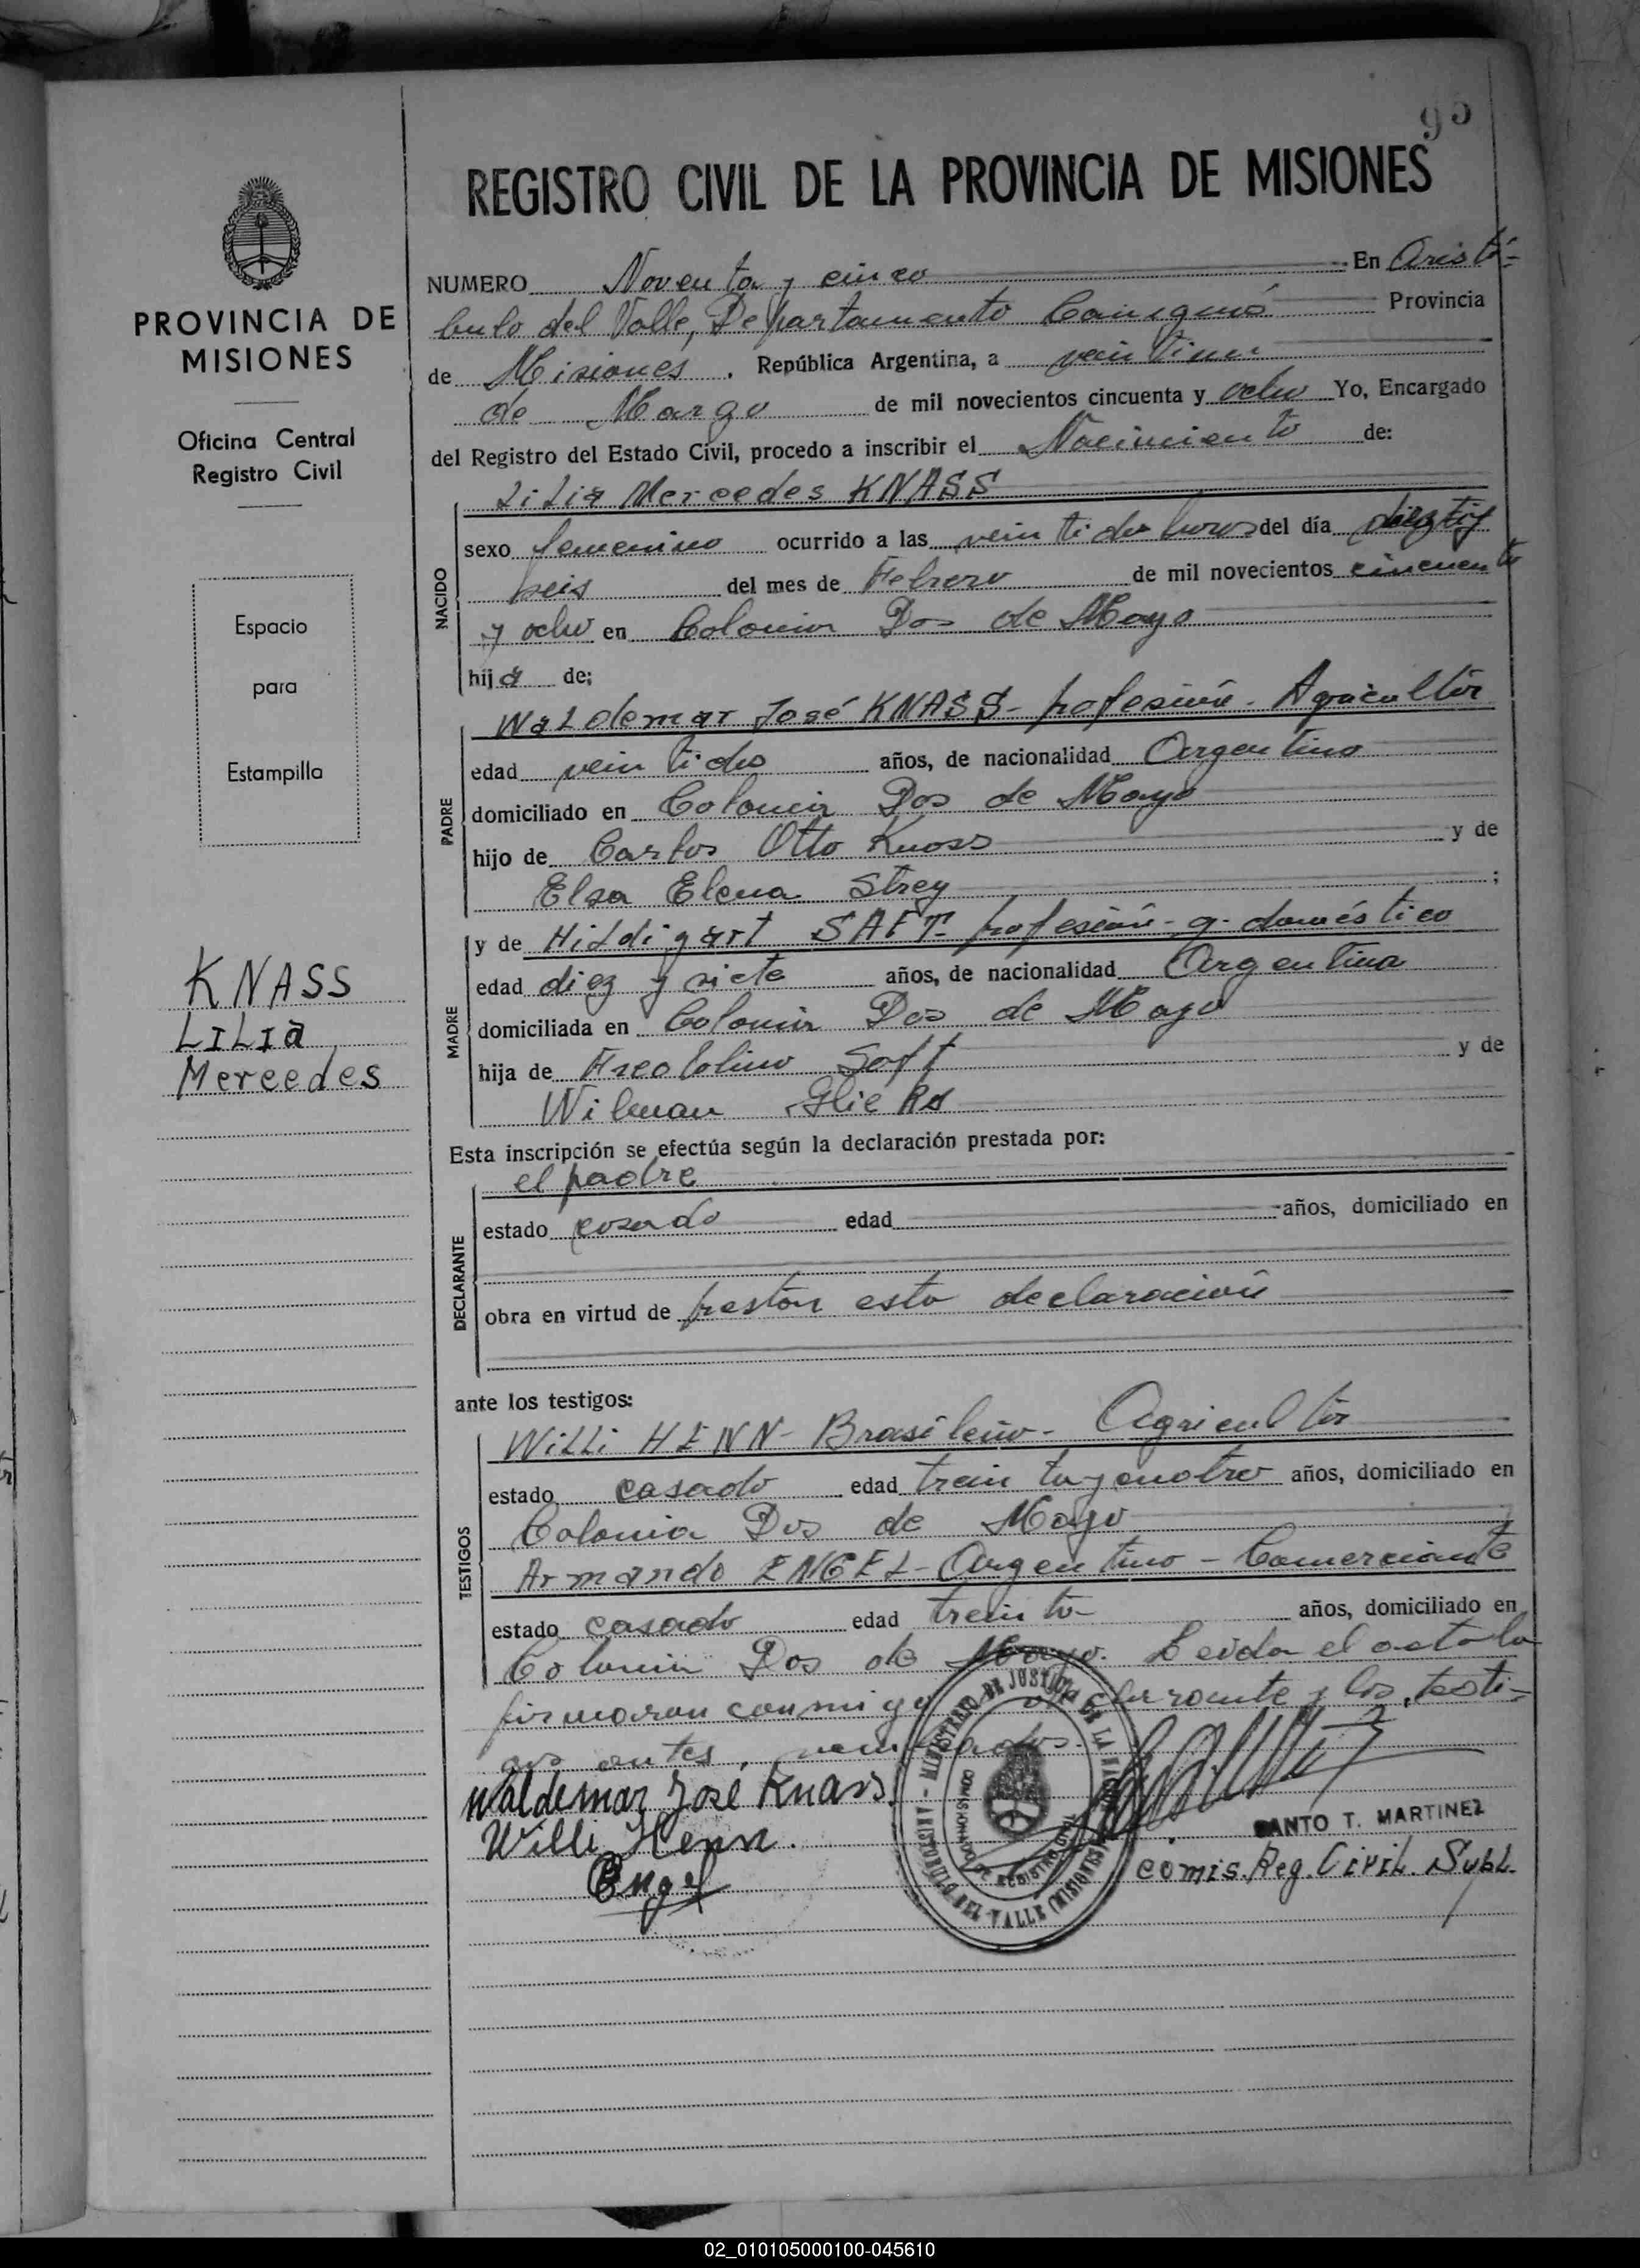 95
REGISTRO CIVIL DE LA PROVINCIA DE MISIONES
PROVINCIA DE
MISIONES
Oficina Central
Registro Civil
Espacio
para
Estampilla
KNASS
LILIA
Mercedes
NUMERO Noventa y cinco En Aristó-
bulo del Valle, Departamento Cainguás Provincia
de Misiones. República Argentina, a veintiun
de Marzo de mil novecientos cincuenta y ocho Yo, Encargado
del Registro del Estado Civil, procedo a inscribir el Nacimiento de:
NACIDO
Lilia Mercedes KNASS
sexo femenino ocurrido a las veintidos horas del día
seis del mes de Febrero de mil novecientos cincuenta
y ocho en Colonia Dos de Mayo
hija de:
PADRE
Waldemar José KNASS- profesión- Agricultor
edad veintidos años, de nacionalidad Argentina
domiciliado en Colonia Dos de Mayo
hijo de Carlos Otto Knass y de
Elsa Elena Strey ;
MADRE
y de Hildigart SAFT- profesión- q. doméstico
edad diez y siete años, de nacionalidad Argentina
domiciliada en Colonia Dos de Mayo
hija de Fredolino Saft y de
Wilman
Esta inscripción se efectúa según la declaración prestada por:
DECLARANTE
el padre
estado casado edad años, domiciliado en
obra en virtud de prestar esta declaración
ante los testigos:
TESTIGOS
Willi HENN- Brasileño- Agricultor
estado casado edad treinta y cuatro años, domiciliado en
Colonia Dos de Mayo
Armando ENGEL- Argentino - Comerciante
estado casado edad treinta- años, domiciliado en
Colonia Dos de Mayo. Leida el acta la
firmaron conmigo el declarante y los testi-
gos antes nombrados.
Waldemar José Knass.
Willi Henn.
Engel
MINISTERIO DE JUSTICIA DE LA
ARISTOBULO DEL VALLE (MISIONES)
SANTO T. MARTINEZ
Comis. Reg. Civil. Subl.
02_010105000100-045610